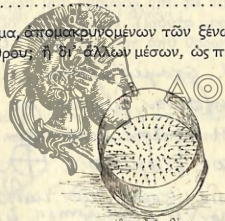 μα, ἀπομακρυνομένων τῶν ξένω
θρου; ἢ δι' ἄλλων μέσων, ὡς π